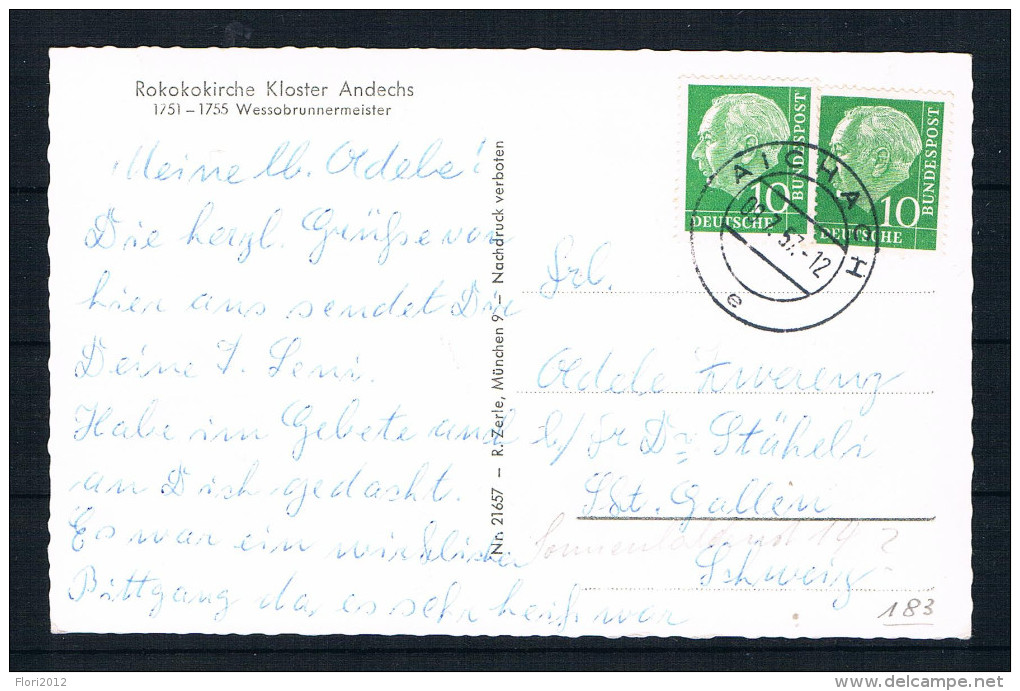 Rokokokirche Kloster Andechs
1751 – 1755 Wessobrunnermeister
Meine lb. Adele!
Die herzl. Grüße von
hier aus sendet Dir
Deine T. Leni.
Habe im Gebete auch
an Dich gedacht.
Es war ein wirklicher
Bittgang da es sehr heiß war
Nr. 21657 – R. Zerle, München 9 – Nachdruck verboten
DEUTSCHE
BUNDESPOST
10
DEUTSCHE
BUNDESPOST
10
AICHACH
7.57.-12
e
Frl.
Adele Zwerenz
b/ Fr Dr Stäheli
St. Gallen
Schweiz
183
Flori2012
delcampe.net